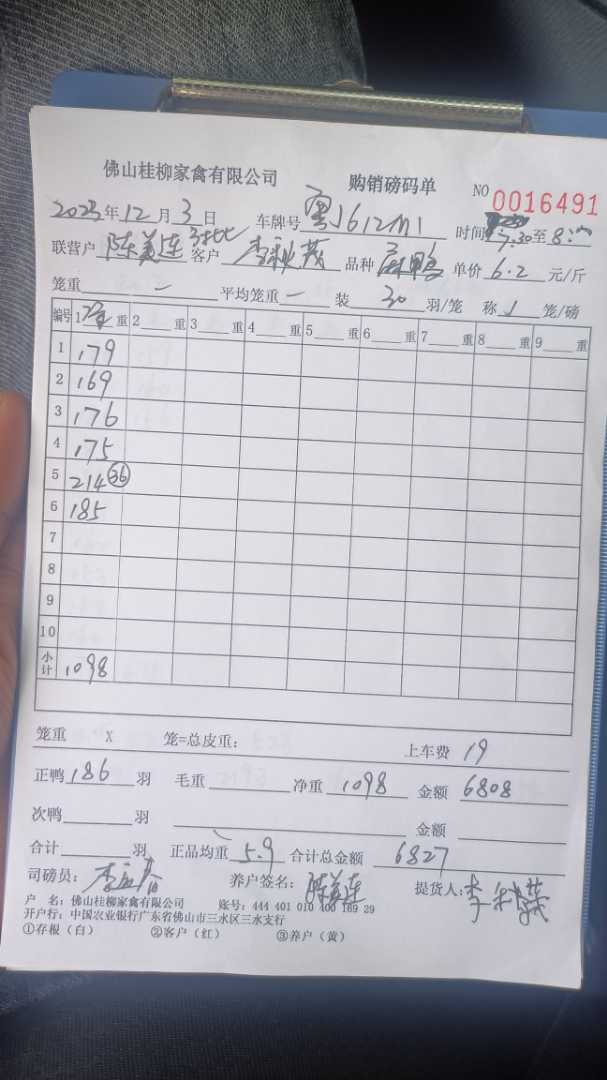 佛山桂柳家禽有限公司 购销磅码单 NO 0016491
2023年12月3日 车牌号 粤J612M1 时间 7:30至8:
联营户 陈美连 客户 李秋茂 品种 麻鸭 单价 6.2 元/斤
笼重 一 平均笼重 一 装 30 羽/笼 称 1 笼/磅
编号 1 净 重 2 重 3 重 4 重 5 重 6 重 7 重 8 重 9 重
1 179
2 169
3 176
4 175
5 214 36
6 185
7
8
9
10
小计 1098
笼重 X 笼=总皮重: 上车费 19
正鸭 186 羽 毛重 净重 1098 金额 6808
次鸭 羽 金额
合计 羽 正品均重 5.9 合计总金额 6827
司磅员: 养户签名: 陈美连 提货人: 李秋茂
户 名: 佛山桂柳家禽有限公司 账号: 444 401 010 400 169 29
开户行: 中国农业银行广东省佛山市三水区三水支行
①存根（白） ②客户（红） ③养户（黄）